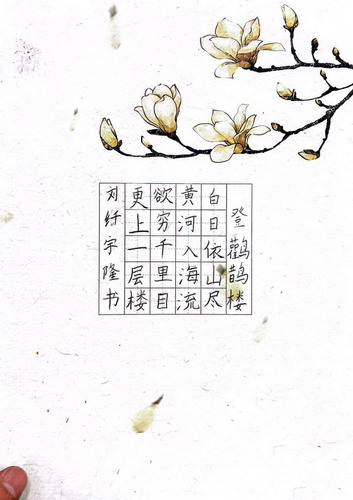 登鸛鹊楼
白日依山尽
黄河入海流
欲穷千里目
更上一层楼
刘纤宇隆书